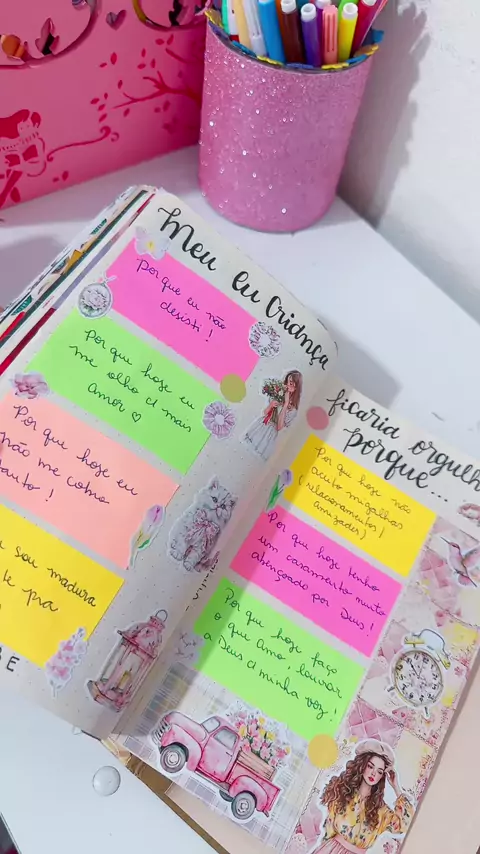 Meu Eu Criança
Porque eu não
desisti!
Por que hoje eu
me olho c/ mais
amor ♡
Por que hoje eu
não me cobro
tanto!
sou madura
te pra
ficaria orgulh
porque...
Por que hoje não
aceito migalhas
(relacionamentos/
amizades)
Por que hoje tenho
um casamento muito
abençoado por Deus!
Por que hoje faço
o que amo, louvar
a Deus c/ minha voz!